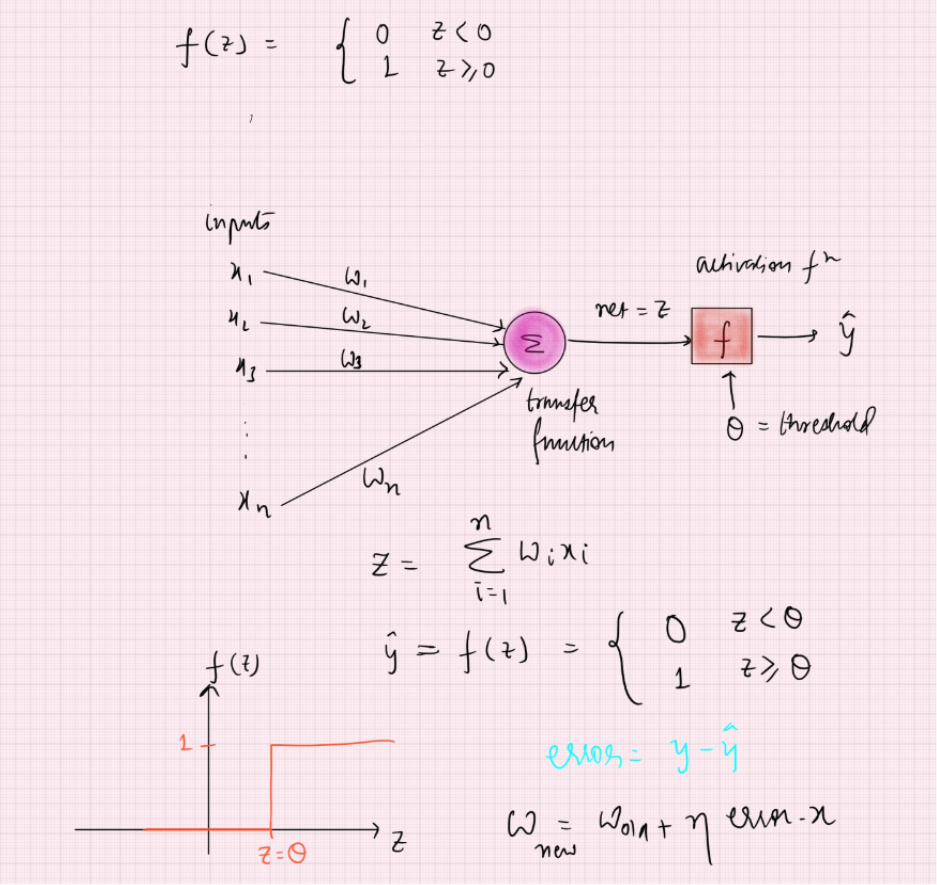 f(z) = { 0 z < 0
1 z ≥ 0
inputs
x₁ w₁
x₂ w₂
x₃ w₃
⋮
xₙ wₙ
Σ
transfer
function
net = z
activation fⁿ
f
ŷ
θ = threshold
z = Σⁿᵢ₌₁ wᵢxᵢ
ŷ = f(z) = { 0 z < θ
1 z ≥ θ
f(z)
1
z = θ
z
error = y - ŷ
w_new = w_old + η error · x